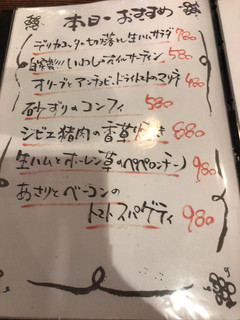 本日のおすすめ
デリカコッター切り落し生ハムサラダ 780
自家製!!いわしオイルサーディン 580
オリーブとアンチョビ、ドライトマトのマリネ 480
砂ずりのコンフィ 580
ジビエ猪肉の香草焼き 880
生ハムとホーレン草のペペロンチーノ 980
あさりとベーコンの
トマトスパゲティ 980